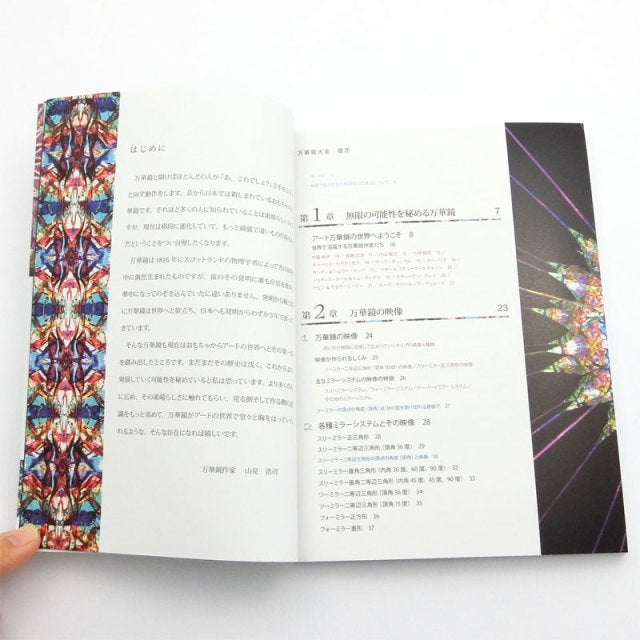 はじめに
万華鏡と聞けばほとんどの人が「あ、これでしょ?」と手をくるく
ると回す動作をします。昔から日本では親しまれているおもちゃの万
華鏡です。それほど多くの人に知られていることは素晴らしいので
すが、現在は格段に進化していて、もっと綺麗で凄いものがあるん
だということをつい自慢したくなります。
万華鏡は1816年にスコットランドの物理学者によって
中に偶然生まれたものですが、彼のその発明に誰もが恋を
夢中になってのぞき込んでいたに違いありません。発明から
に万華鏡は世界へと旅立ち、日本へも発明からわずか3年で
きています。
そんな万華鏡も現在はおもちゃからアートの世界へとその第一歩
を踏み出したところです。まだまだその歴史は浅く、これから
発展していく可能性を秘めていると私は思っています。より多くの人
に広め、その素晴らしさに触れてもらい、見る側そして作る側の
識をもっと高めて、万華鏡がアートの世界で堂々と胸をはってい
れるような、そんな存在になれば嬉しいです。
万華鏡作家 山見 浩司
万華鏡大全 目次
第1章 無限の可能性を秘める万華鏡 7
アート万華鏡の世界へようこそ 8
世界で活躍する万華鏡作家たち 10
第2章 万華鏡の映像 23
1 万華鏡の映像 24
映像が作られるしくみ 25
主なミラーシステムの映像の特徴 26
ツーミラーの頂点の角度(頂角)は360度を割り切れる数値で 27
2 各種ミラーシステムとその映像 28
スリーミラー正三角形 28
スリーミラー二等辺三角形(頂角36度) 29
スリーミラー二等辺三角形の頂点の角度(頂角)と映像 30
スリーミラー直角三角形(内角30度、60度、90度) 32
スリーミラー直角二等辺三角形(内角45度、45度、90度) 33
ツーミラー二等辺三角形(頂角36度) 34
ツーミラー二等辺三角形(頂角15度) 35
フォーミラー正方形 36
フォーミラー菱形 37